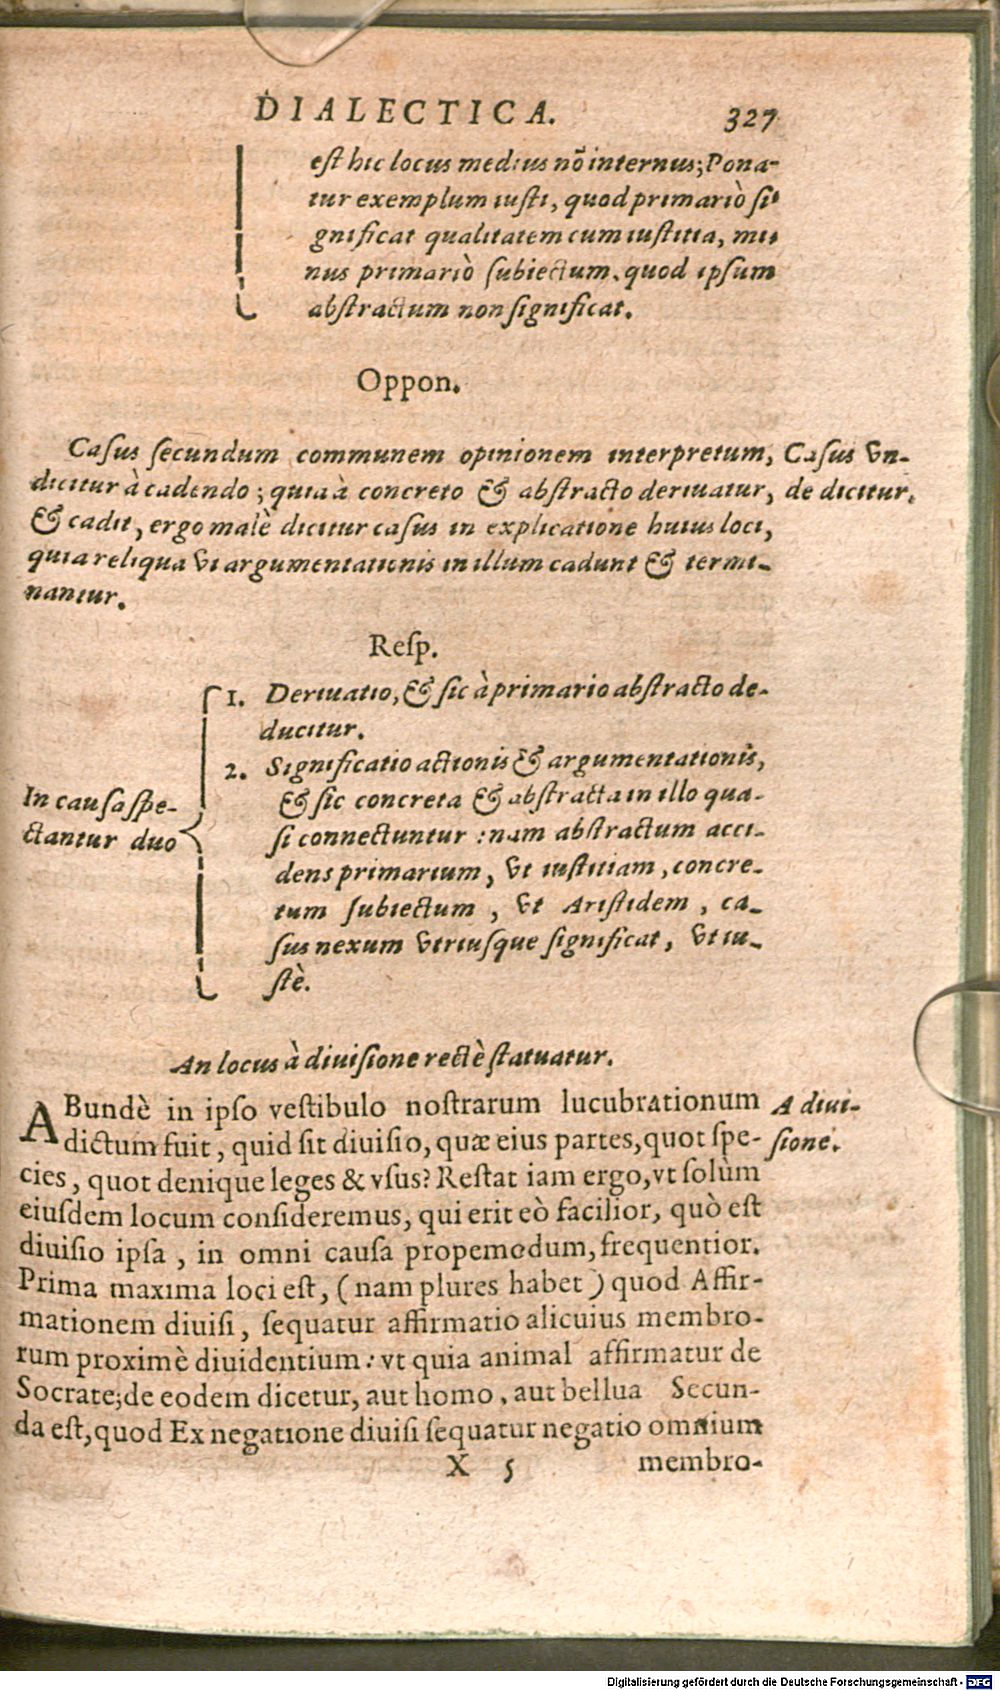 DIALECTICA. 327
est hic locus medius nõ internus; Pona-
tur exemplum iusti, quod primariò si-
gnificat qualitatem cum iustitia, mi-
nus primariò subiectum, quod ipsum
abstractum non significat.
Oppon.
Casus secundum communem opinionem interpretum,
dicitur à cadendo; quia à concreto & abstracto deriuatur,
& cadit, ergo malè dicitur casus in explicatione huius loci,
quia reliqua vt argumentationis in illum cadunt & termi-
nantur.
Casus vn-
de dicitur.
Resp.
In causa spe-
ctantur duo
1. Deriuatio, & sic à primario abstracto de-
ducitur.
2. Significatio actionis & argumentationis,
& sic concreta & abstracta in illo qua-
si connectuntur: nam abstractum acci-
dens primarium, vt iustitiam, concre-
tum subiectum, vt Aristidem, ca-
sus nexum vtriusque significat, vt iu-
stè.
An locus à diuisione rectè statuatur.
ABundè in ipso vestibulo nostrarum lucubrationum
dictum fuit, quid sit diuisio, quæ eius partes, quot spe-
cies, quot denique leges & vsus? Restat iam ergo, vt solùm
eiusdem locum consideremus, qui erit eò facilior, quò est
diuisio ipsa, in omni causa propemodum, frequentior.
Prima maxima loci est, (nam plures habet) quod Affir-
mationem diuisi, sequatur affirmatio alicuius membro-
rum proximè diuidentium: vt quia animal affirmatur de
Socrate; de eodem dicetur, aut homo, aut bellua Secun-
da est, quod Ex negatione diuisi sequatur negatio omnium
A diui-
sione.
X 5 membro-
Digitalisierung gefördert durch die Deutsche Forschungsgemeinschaft - DFG